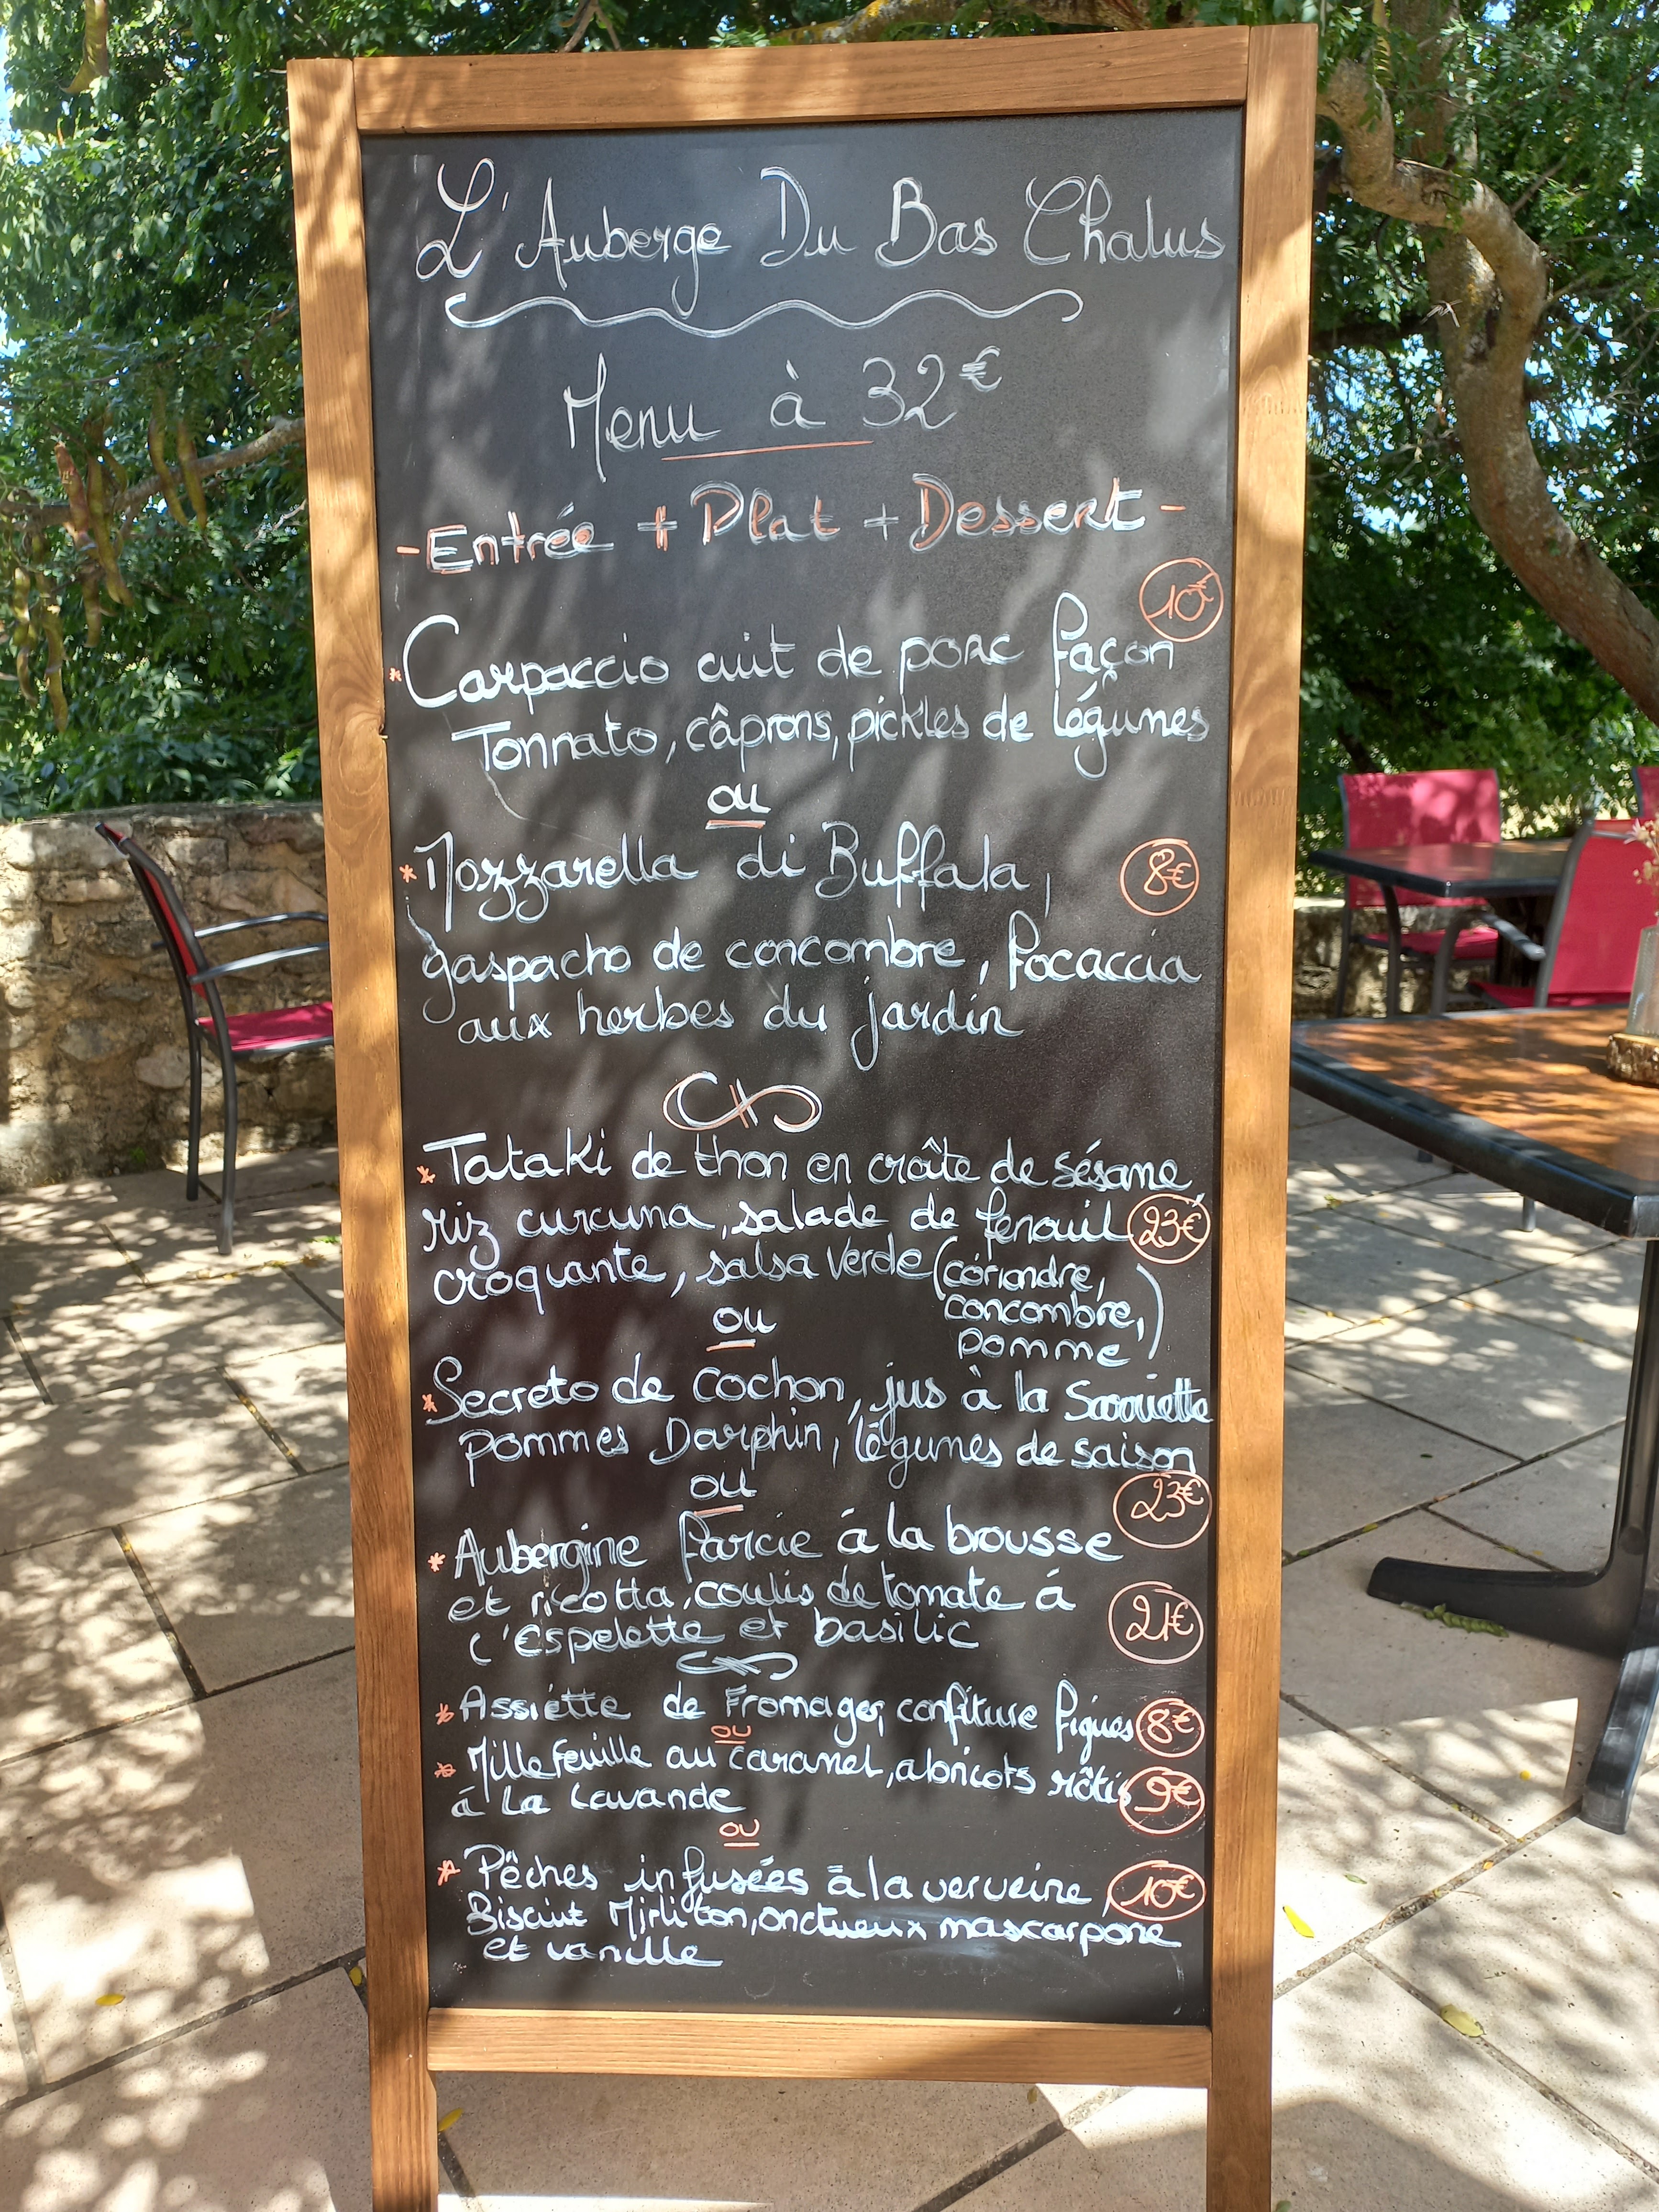 L'Auberge Du Bas Chalus
Menu à 32€
- Entrée + Plat + Dessert -
10€
* Carpaccio cuit de porc façon
Tonnato, câprons, pickles de légumes
ou
* Mozzarella di Buffala, 8€
gaspacho de concombre, focaccia
aux herbes du jardin
* Tataki de thon en croûte de sésame,
riz curcuma, salade de fenouil 23€
croquante, salsa verde (coriandre,
concombre,)
pomme
ou
* Secreto de cochon, jus à la Sarriette
pommes Darphin, légumes de saison
ou
23€
* Aubergine farcie à la brousse
et ricotta, coulis de tomate à
l'Espelette et basilic 21€
* Assiette de Fromages, confiture figues 8€
ou
* Millefeuille au caramel, abricots rôtis 9€
à la lavande
ou
* Pêches infusées à la verveine, 10€
Biscuit Mirliton, onctueux mascarpone
et vanille